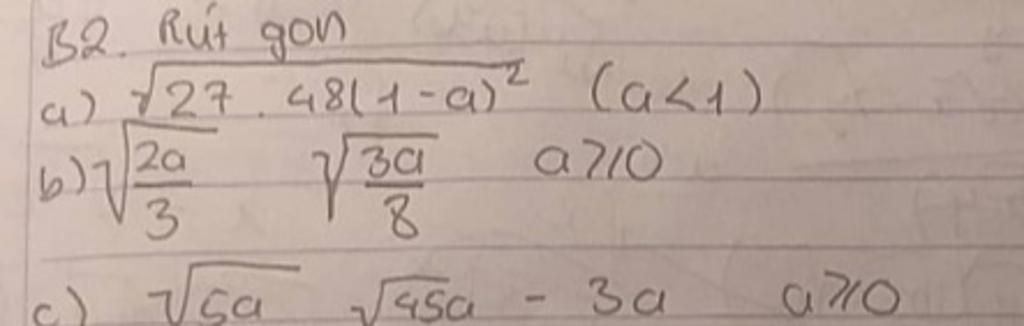 B2. Rút gọn
a) √27 . 48(1-a)² (a<1)
b) √2a/3 √3a/8 a≥0
c) √5a √45a - 3a a≥0